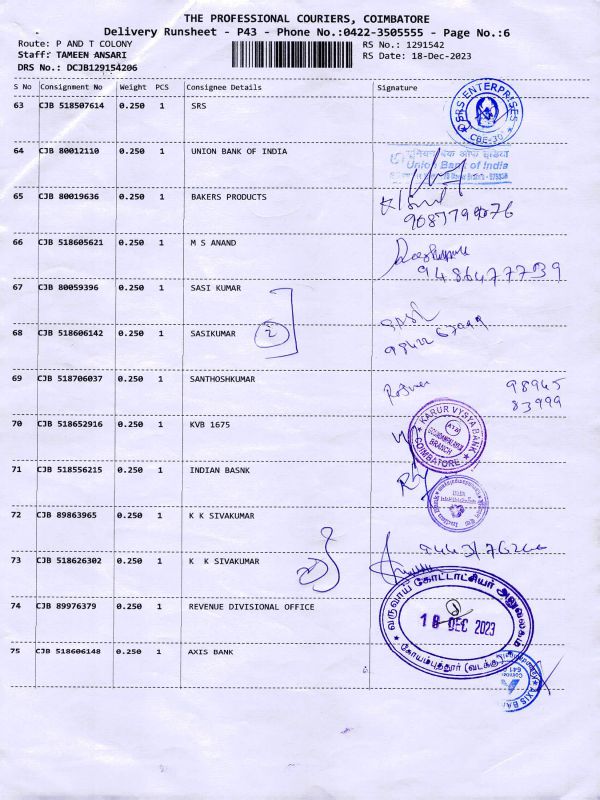 THE PROFESSIONAL COURIERS, COIMBATORE
Delivery Runsheet - P43 - Phone No.:0422-3505555 - Page No.:6
Route: P AND T COLONY
RS No.: 1291542
Staff: TAMEEN ANSARI
RS Date: 18-Dec-2023
DRS No.: DCJB129154206
S No Consignment No Weight PCS Consignee Details Signature
63 CJB 518507614 0.250 1 SRS
SRS ENTERPRISES
CBE-30
64 CJB 80012110 0.250 1 UNION BANK OF INDIA
यूनियन बैंक ऑफ इंडिया
Union Bank of India
65 CJB 80019636 0.250 1 BAKERS PRODUCTS
66 CJB 518605621 0.250 1 M S ANAND
9486477739
67 CJB 80059396 0.250 1 SASI KUMAR
68 CJB 518606142 0.250 1 SASIKUMAR
2
69 CJB 518706037 0.250 1 SANTHOSHKUMAR
98945
83999
70 CJB 518652916 0.250 1 KVB 1675
KARUR VYSYA BANK
BRANCH
COIMBATORE
71 CJB 518556215 0.250 1 INDIAN BASNK
72 CJB 89863965 0.250 1 K K SIVAKUMAR
73 CJB 518626302 0.250 1 K K SIVAKUMAR
74 CJB 89976379 0.250 1 REVENUE DIVISIONAL OFFICE
வருவாய் கோட்டாட்சியர் அலுவலகம்
18 DEC 2023
கோயம்புத்தூர் (வடக்கு)
75 CJB 518606148 0.250 1 AXIS BANK
AXIS BANK